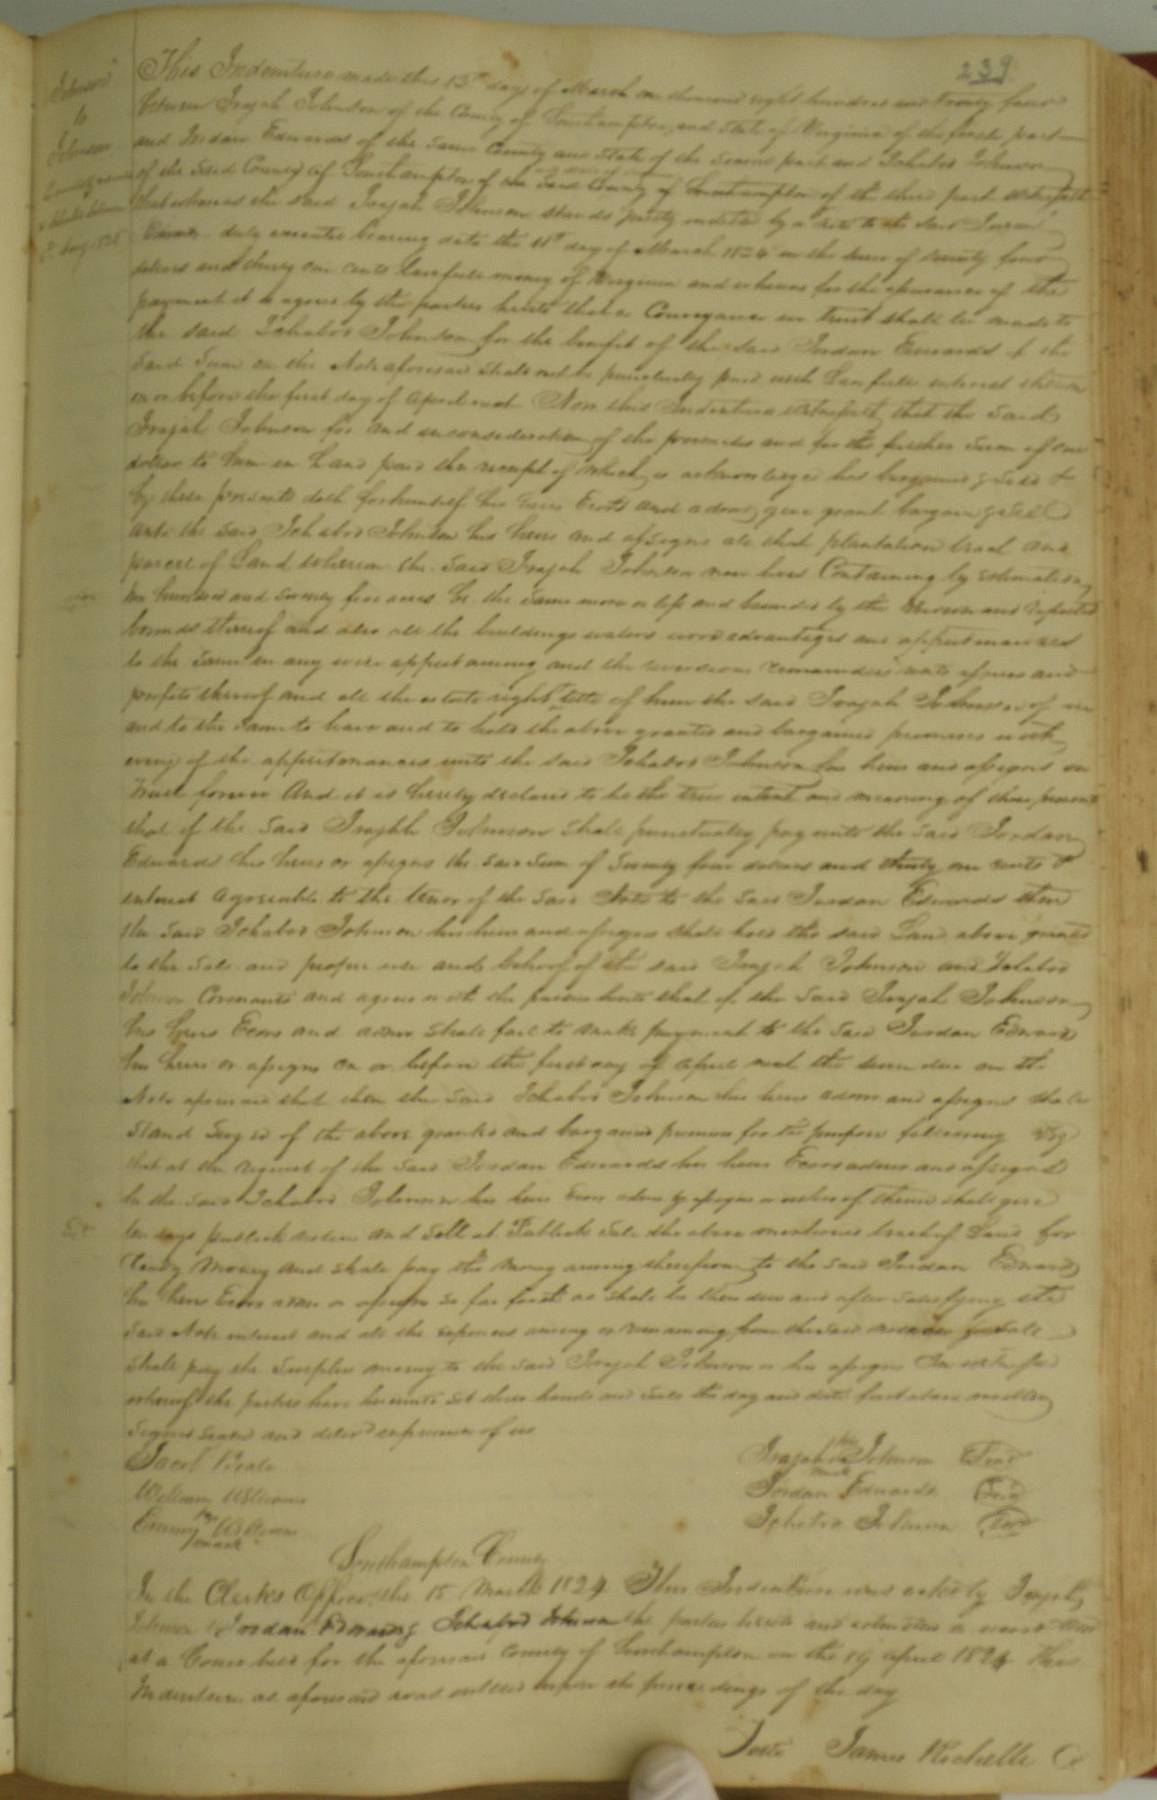 239
Johnson
to
Johnson
This Indenture made this 15th day of March one thousand eight hundred and twenty four
between Irajah Johnson of the County of Southampton and State of Virginia of the first part
and Jordan Edwards of the same County and State of the second part and Ichabod Johnson
of the said County of Southampton of the said County of Southampton of the third part witnesseth
that whereas the said Irajah Johnson stands justly indebted by a note to the said Jordan
Edwards duly executed bearing date the 11th day of March 1824 in the sum of seventy four
dollars and thirty one cents lawfull money of Virginia and whereas for the assurance of the
payment it is agreed by the parties hereto that a Conveyance in trust shall be made to
the said Ichabod Johnson for the benefit of the said Jordan Edwards if the
said Sum on the Note aforesaid shall not be punctually paid with Lawfull interest thereon
on or before the first day of April next Now this Indenture witnesseth that the said
Irajah Johnson for and in consideration of the premises and for the further sum of one
dollar to him in hand paid the receipt of which is acknowledged has bargained & sold &
by these presents doth for himself his heirs Exors and admrs give grant bargain & sell
unto the said Ichabod Johnson his heirs and assigns all that plantation tract and
parcel of Land wherein the said Irajah Johnson now lives Containing by estimation
hundred and seventy five acres be the same more or less and bounded by the known and reputed
bounds thereof and also all the buildings waters wood advantages and appurtenances
to the same in any wise appertaining and the reversions remainders rents issues and
profits thereof and all the estate right title of him the said Irajah Johnson of in
and to the same to have and to hold the above granted and bargained premises with
every of the appurtenances unto the said Ichabod Johnson his heirs and assigns in
trust forever And it is hereby declared to be the true intent and meaning of these presents
that if the said Irajah Johnson shall punctually pay unto the said Jordan
Edwards his heirs or assigns the said Sum of seventy four dollars and thirty one cents &
interest agreeable to the tenor of the said Note to the said Jordan Edwards then
the said Ichabod Johnson his heirs and assigns shall hold the said Land above granted
to the sole and proper use and behoof of the said Irajah Johnson and Ichabod
Johnson Covenants and agrees with the parties hereto that if the said Irajah Johnson
his heirs Exors and admrs shall fail to make payment to the said Jordan Edwards
his heirs or assigns on or before the first day of April next the sum due on the
Note aforesaid that then the said Ichabod Johnson his heirs admrs and assigns shall
stand Seized of the above granted and bargained premises for the purpose following Viz
that at the request of the said Jordan Edwards his heirs Exors admrs and assigns
he the said Ichabod Johnson his heirs Exors admrs & assigns or either of them shall give
ten days publick notice and sell at Publick sale the above mentioned tract of Land for
ready Money and shall pay the money arising therefrom to the said Jordan Edwards
his heirs Exors admrs or assigns so far forth as shall be then due and after satisfying the
said Note interest and all the expences arising or remaining from the said sale
shall pay the Surplus money to the said Irajah Johnson or his assigns In witness
whereof the parties have hereunto set their hands and seals the day and date first above written
Signed sealed and delivd in presence of us
Jacob Beale
William Williams
Emmy her Williams
mark
Irajah his Johnson Seal
mark
Jordan Edwards Seal
Ichabod Johnson Seal
Southampton County
In the Clerk's Office the 15 March 1824 This Indenture was ackd by Irajah
Johnson Jordan Edwards & Ichabod Johnson the parties hereto and
at a Court held for the aforesaid County of Southampton on the 19 April 1824 This
Indenture as aforesaid was entered upon the proceedings of the day
Teste James Rochelle C